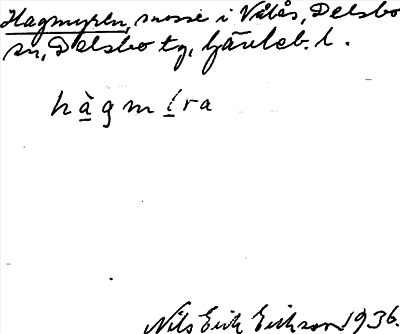 Hagmyren, mosse i Vålås, Delsbo
sn, Delsbo tg, Gävleb. l.
hàgmíra
Nils Erik Erikson 1936.